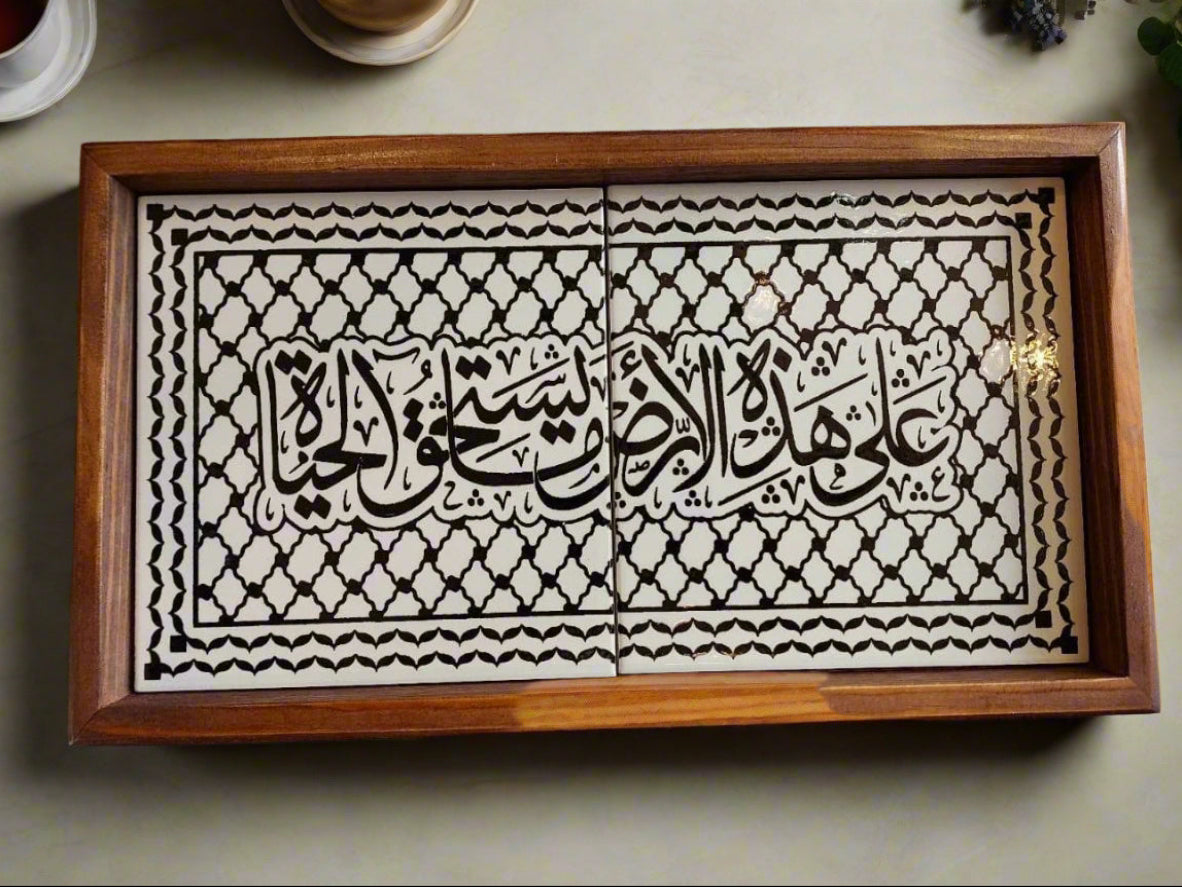 عَلَى هَذِهِ الْأَرْضِ مَا يَسْتَحِقُّ الْحَيَاةَ